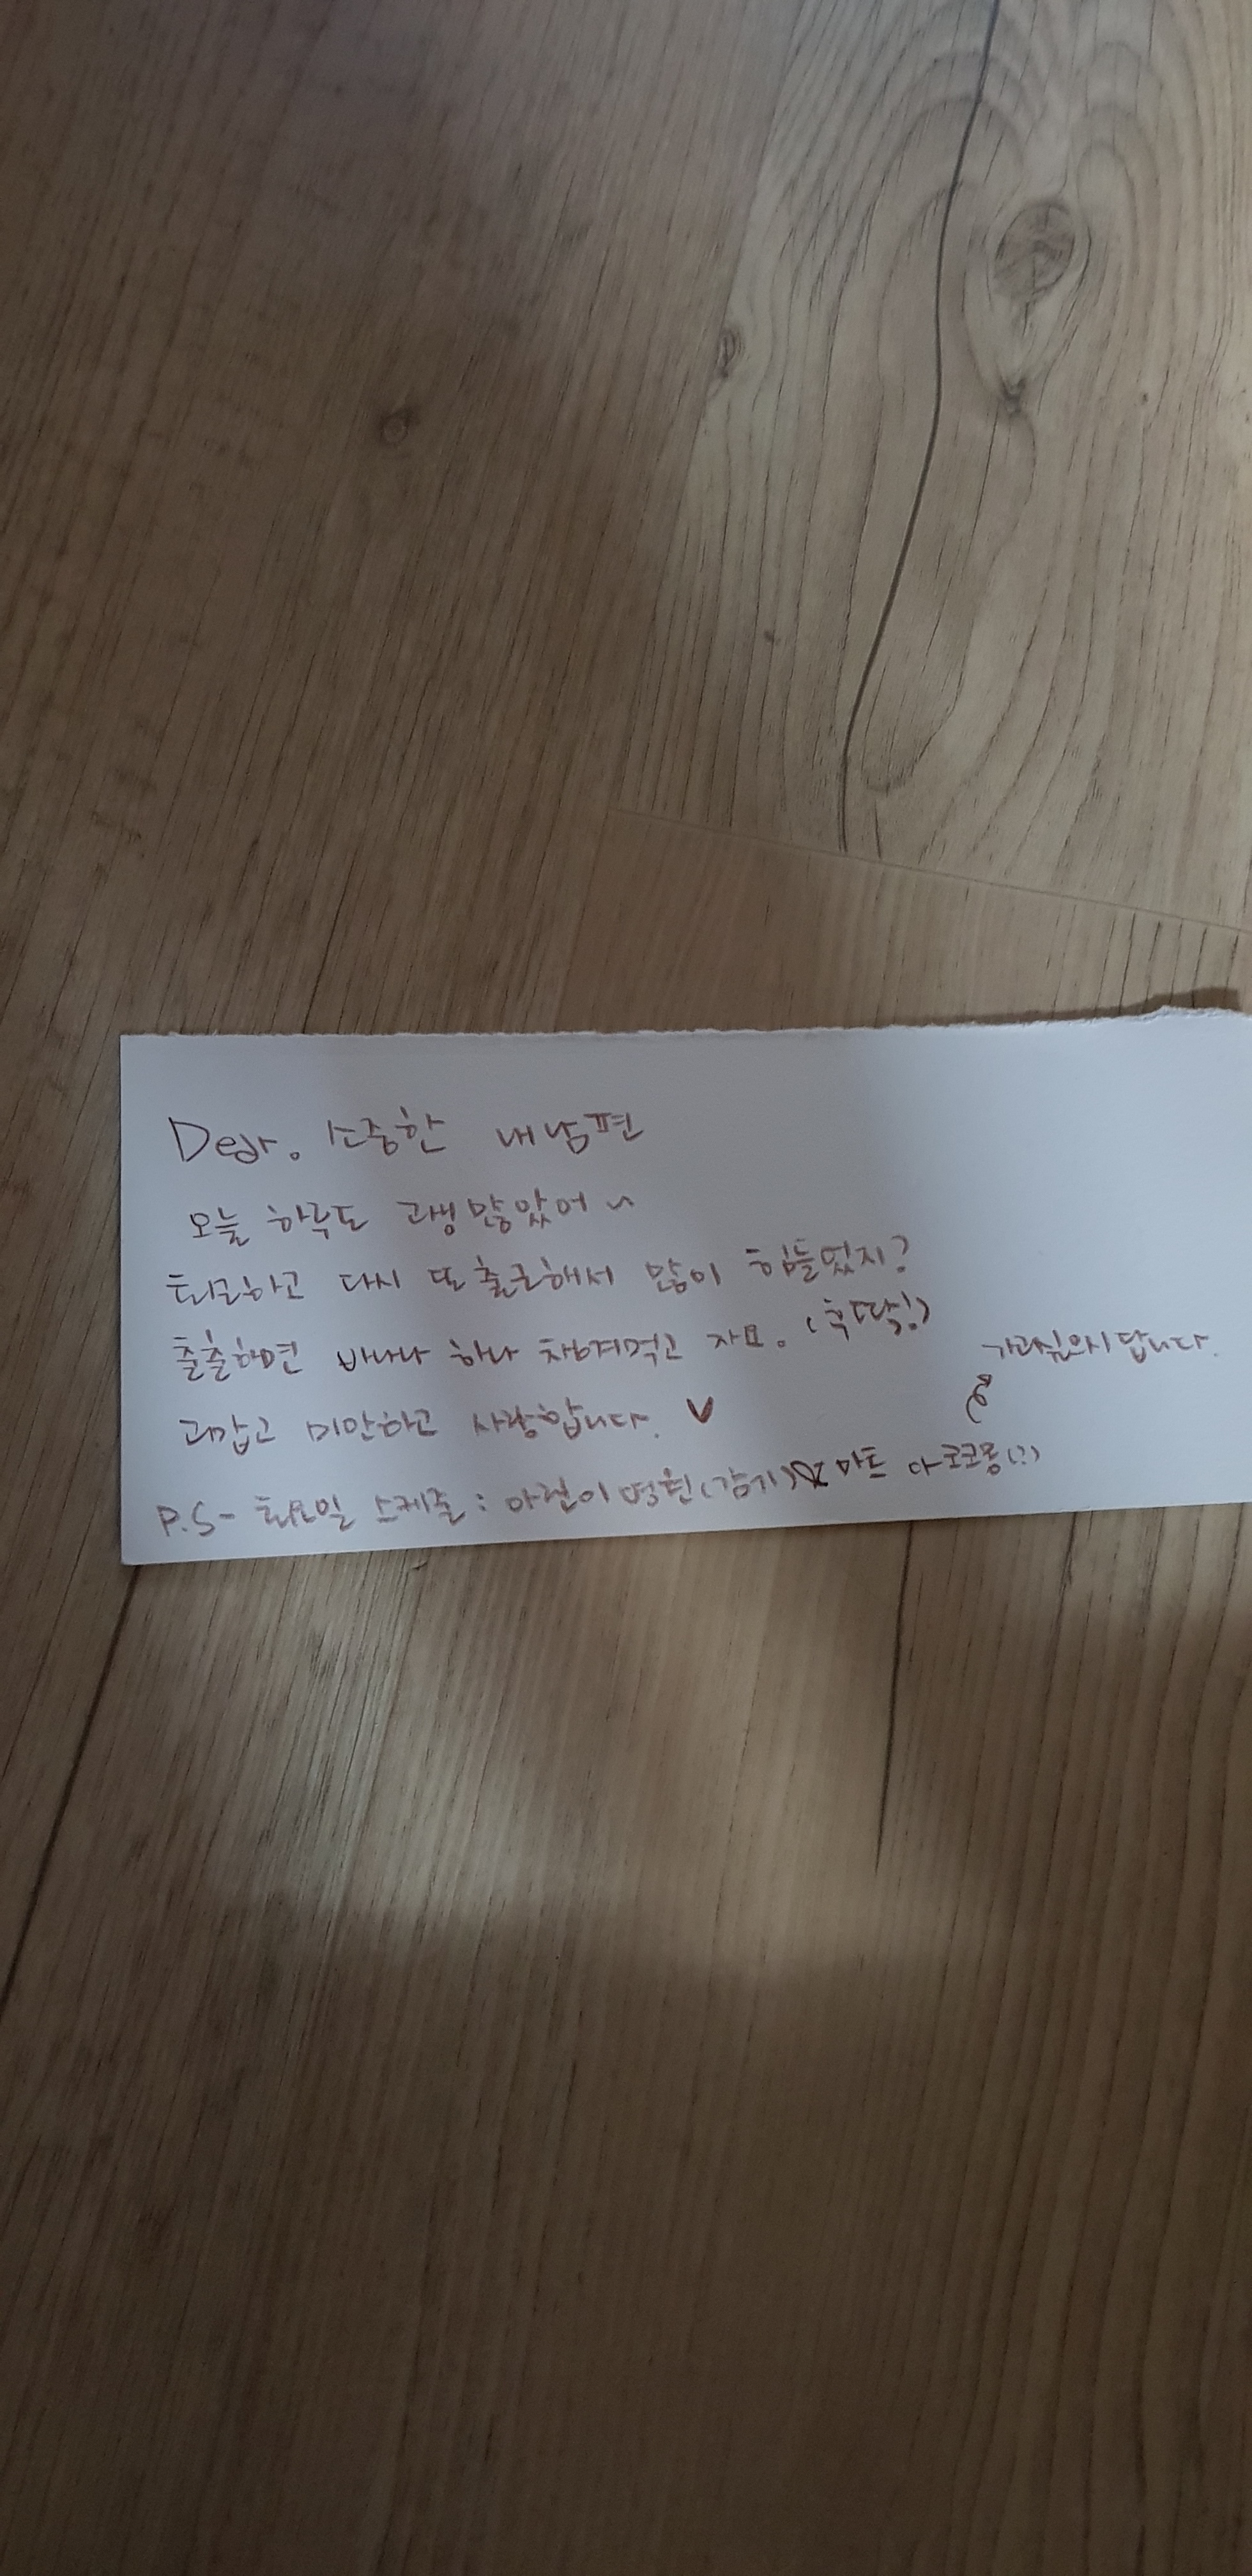 Dear. 소중한 내남편
오늘 하루도 고생많았어~
퇴근하고 다시 또 출근해서 많이 힘들었지?
출출하면 바나나 하나 챙겨먹고 자요. (후딱!)
고맙고 미안하고 사랑합니다. ♥
가고싶으시답니다.
P.S- 화요일 스케줄 : 아련이 병원(감기) 마트 아코코몽(?)